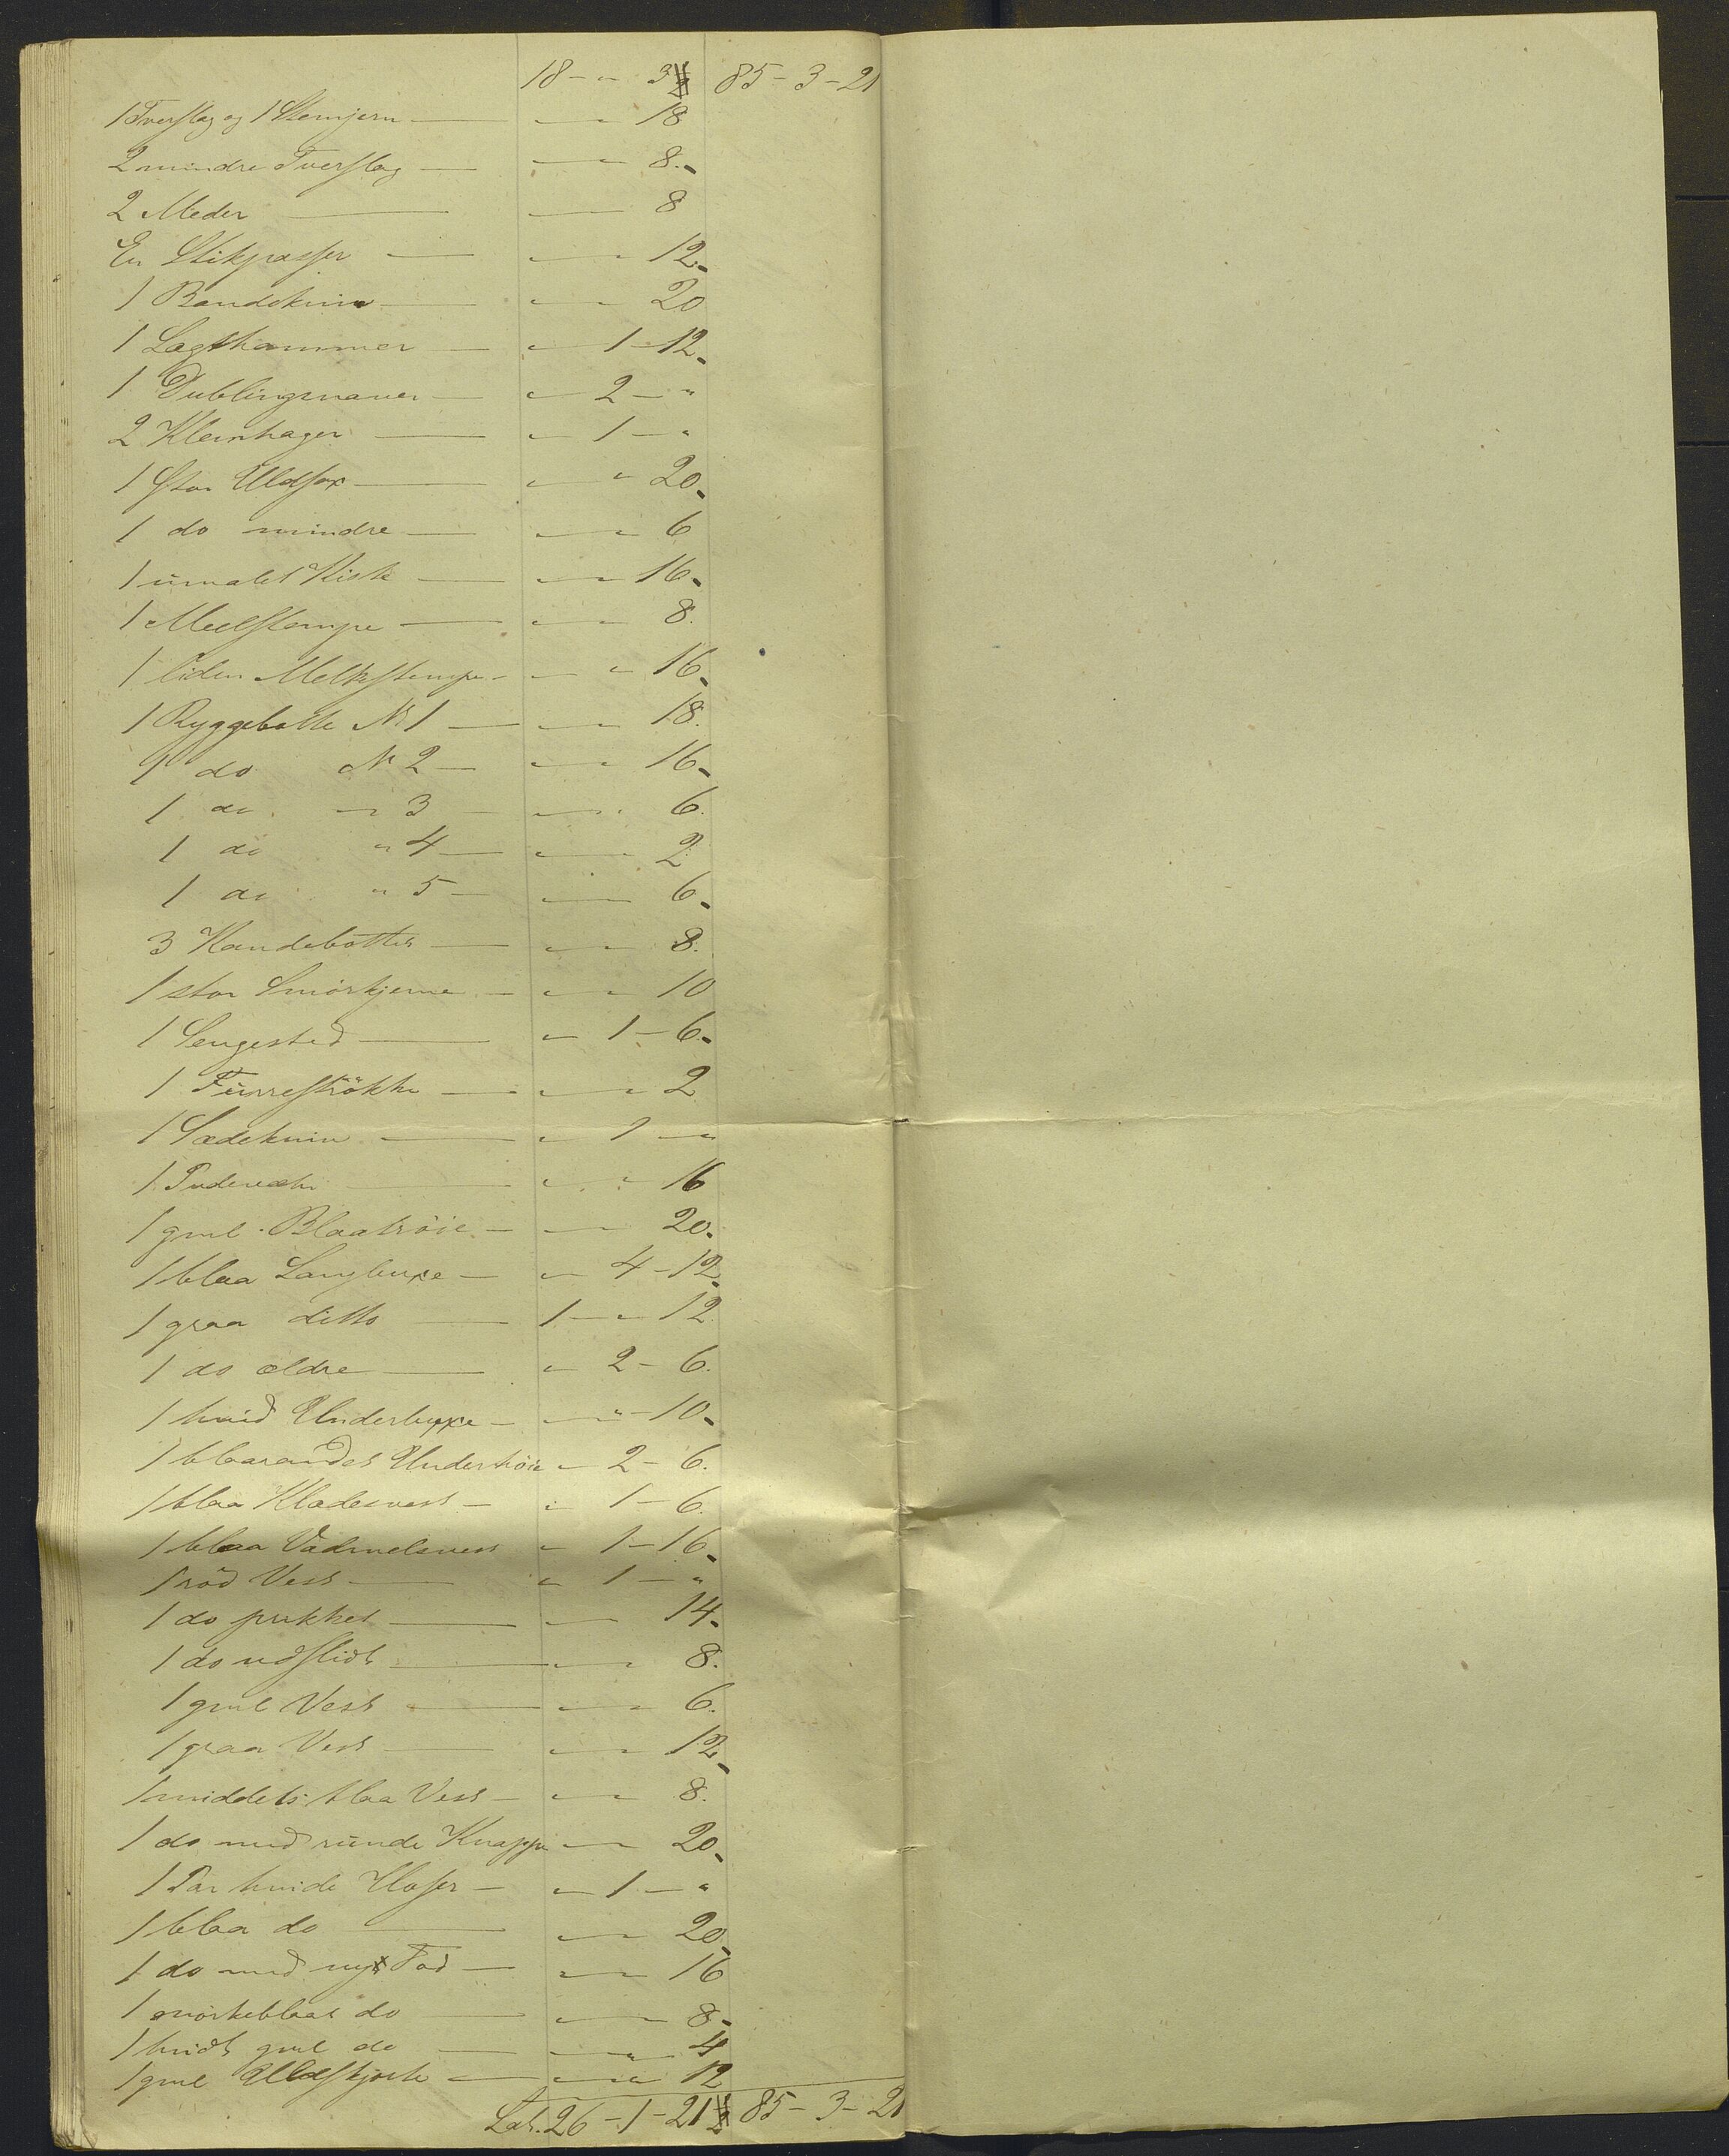 18 - " 3½ 85 - 3 - 21
1 Tverslag og 1 Stemjern — " — " 18
2 mindre Tverslag — " — " 8.
2 Meder — " — 8
En Stikpasser — " — " 12
1 Bandekniv — " — " 20
1 Lægthammer — " 1 - 12
1 Dublingsnaver — " 2 — "
2 Klemhager — " 1 — "
1 stor Uldsax — " " 20
1 do mindre — " — " 6
1 umalet Kiste — " — " 16
1 Meelstampe — " — " 8.
1 liden Melkestampe — " — " 16
1 Ryggebøtte No 1 — " — " 18.
1 do No 2 — " — " 16
1 do. — " 3 — " — " 6.
1 do " 4 — " — 2
1 do " 5 — " — 6
3 Kandebøtter — " — " 8.
1 stor Smörkjerne — " — " 10
1 Sengested — " 1 - 6
1 Fürreströkke — " — " 2
1 Sædekniv — " 1 — "
1 Pudevær — " " 16
1 gml. Blaatröie — " — " 20.
1 blaa Langbuxe — " 4 - 12
1 graa ditto — 1 — " 12
1 do ældre — " 2 - 6.
1 hvid Underbuxe — " — " 10
1 blaarandet Undertröie " 2 - 6.
1 blaa Klædesvest — " 1 - 6.
1 blaa Vadmelsvest " 1 - 16
1 röd Vest — " 1 — "
1 do prikket — " — 14
1 do udslidt — " — " 8.
1 gml Vest — " — " 6.
1 graa Vest — " — " 12
1 middels blaa Vest — " — " 8.
1 do med runde Knappe " — " 20
1 Par hvide Hoser — " 1 — "
1 blaa do — " — " 20
1 do med nyt Fod — " — " 16
1 mörkeblaat do — " — " 8
1 hvidt gml do — " — " 4
1 gml Uldskjorte — " — " 12
Lat. 26 - 1 - 21½ 85 - 3 - 21